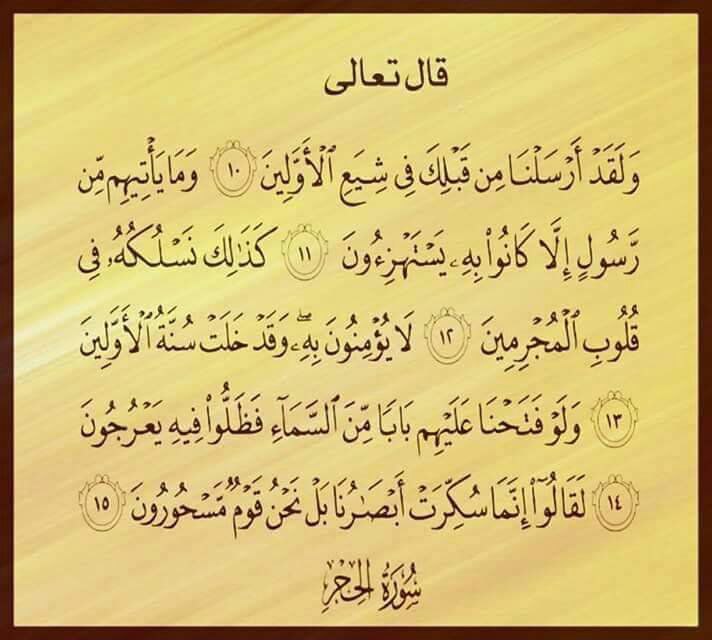 قال تعالى
وَلَقَدْ أَرْسَلْنَا مِن قَبْلِكَ فِى شِيَعِ ٱلْأَوَّلِينَ ١٠ وَمَا يَأْتِيهِم مِّن
رَّسُولٍ إِلَّا كَانُوا۟ بِهِۦ يَسْتَهْزِءُونَ ١١ كَذَٰلِكَ نَسْلُكُهُۥ فِى
قُلُوبِ ٱلْمُجْرِمِينَ ١٢ لَا يُؤْمِنُونَ بِهِۦ ۖ وَقَدْ خَلَتْ سُنَّةُ ٱلْأَوَّلِينَ
١٣ وَلَوْ فَتَحْنَا عَلَيْهِم بَابًا مِّنَ ٱلسَّمَآءِ فَظَلُّوا۟ فِيهِ يَعْرُجُونَ
١٤ لَقَالُوٓا۟ إِنَّمَا سُكِّرَتْ أَبْصَـٰرُنَا بَلْ نَحْنُ قَوْمٌ مَّسْحُورُونَ ١٥
سُورَةُ الحِجْرِ